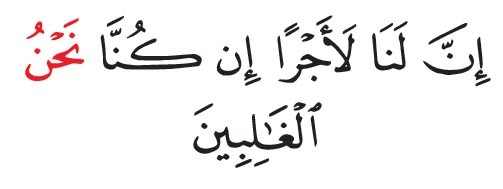 إِنَّ لَنَا لَأَجْرًا إِن كُنَّا نَحْنُ
ٱلْغَٰلِبِينَ